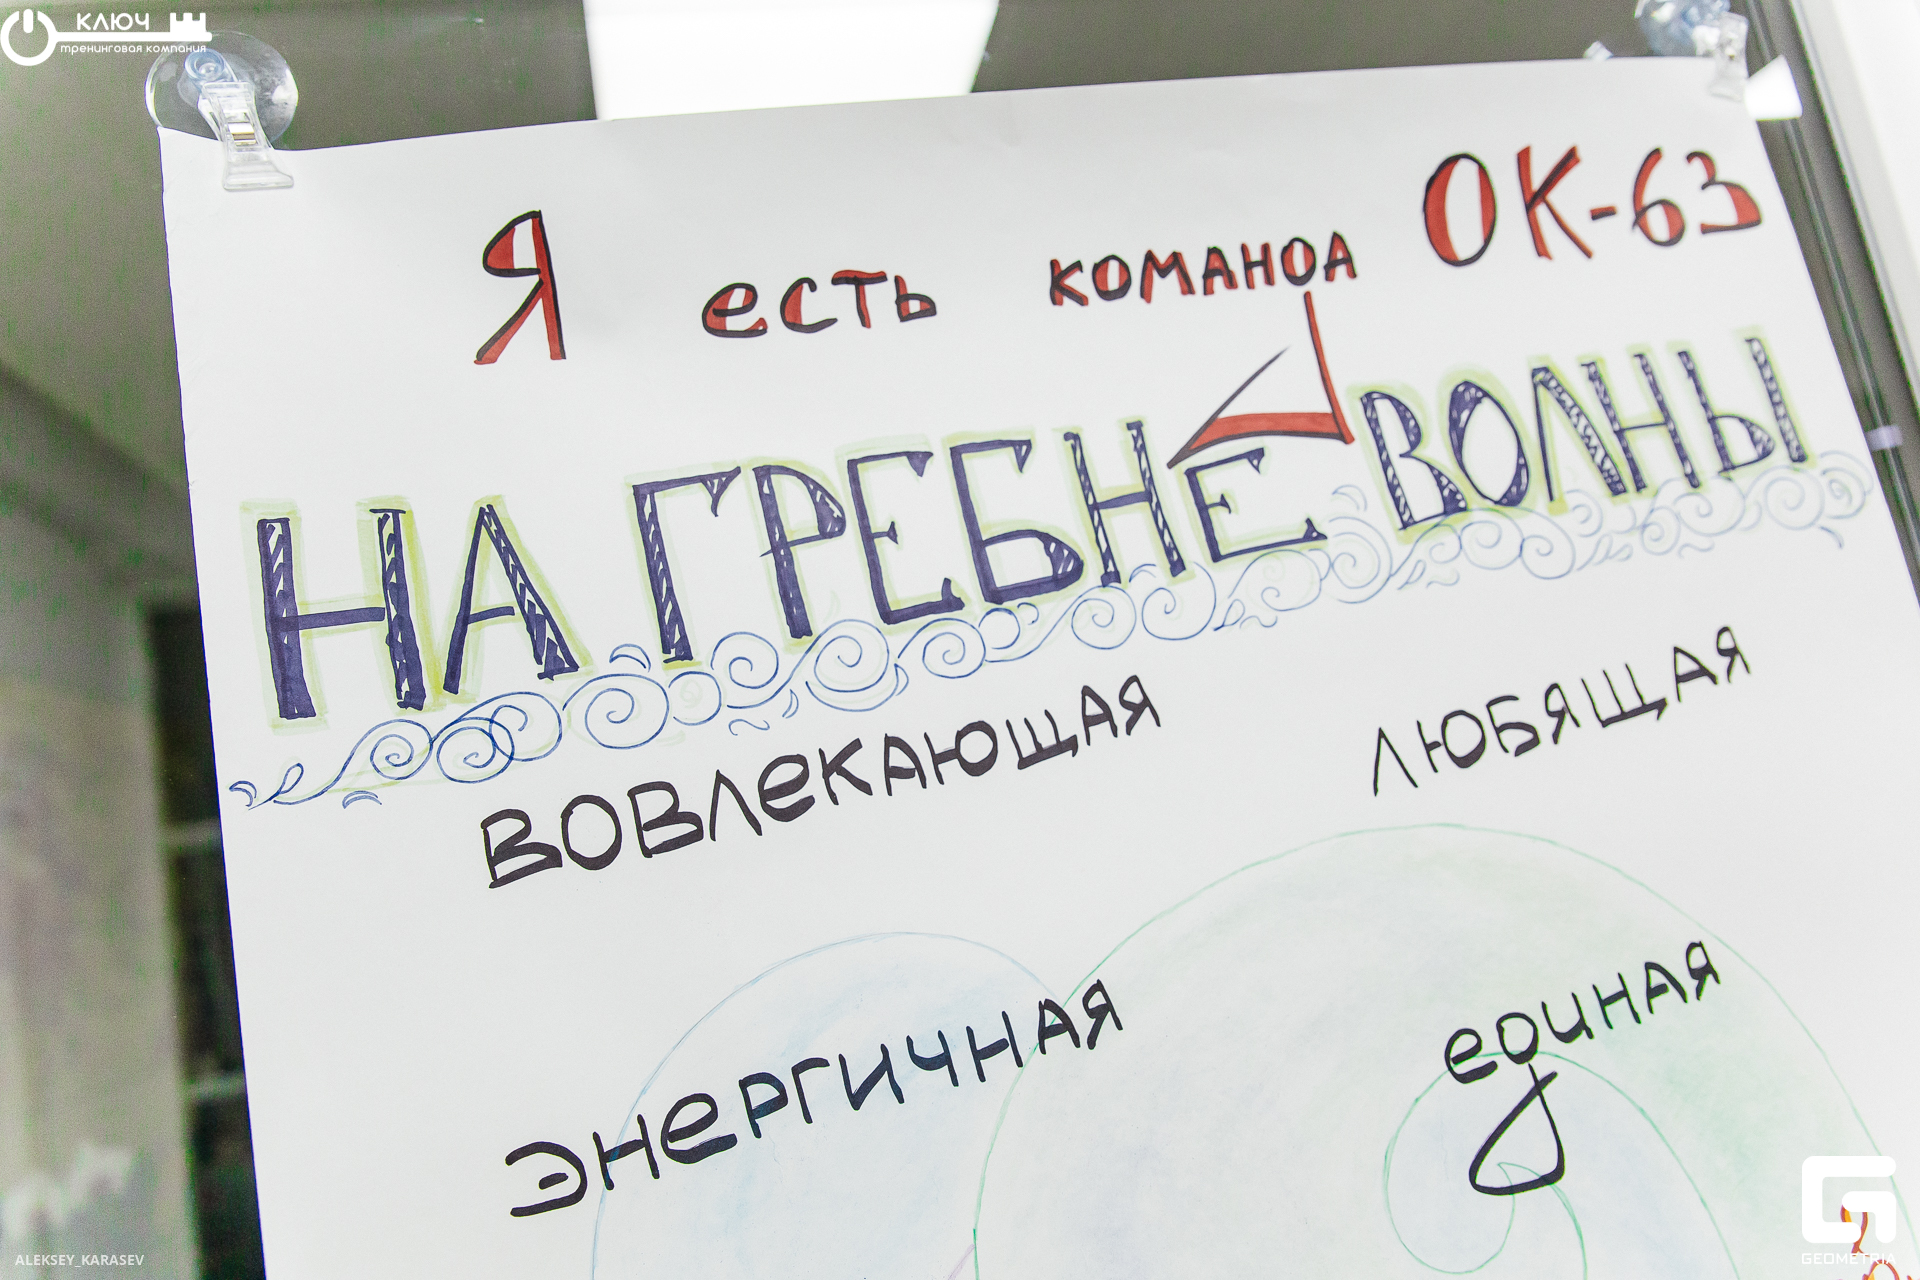 КЛЮЧ
тренинговая компания
Я есть команда ОК-63
НА ГРЕБНЕ ВОЛНЫ
ВОВЛЕКАЮЩАЯ ЛЮБЯЩАЯ
ЭНЕРГИЧНАЯ единАЯ
ALEKSEY_KARASEV
GEOMETRIA